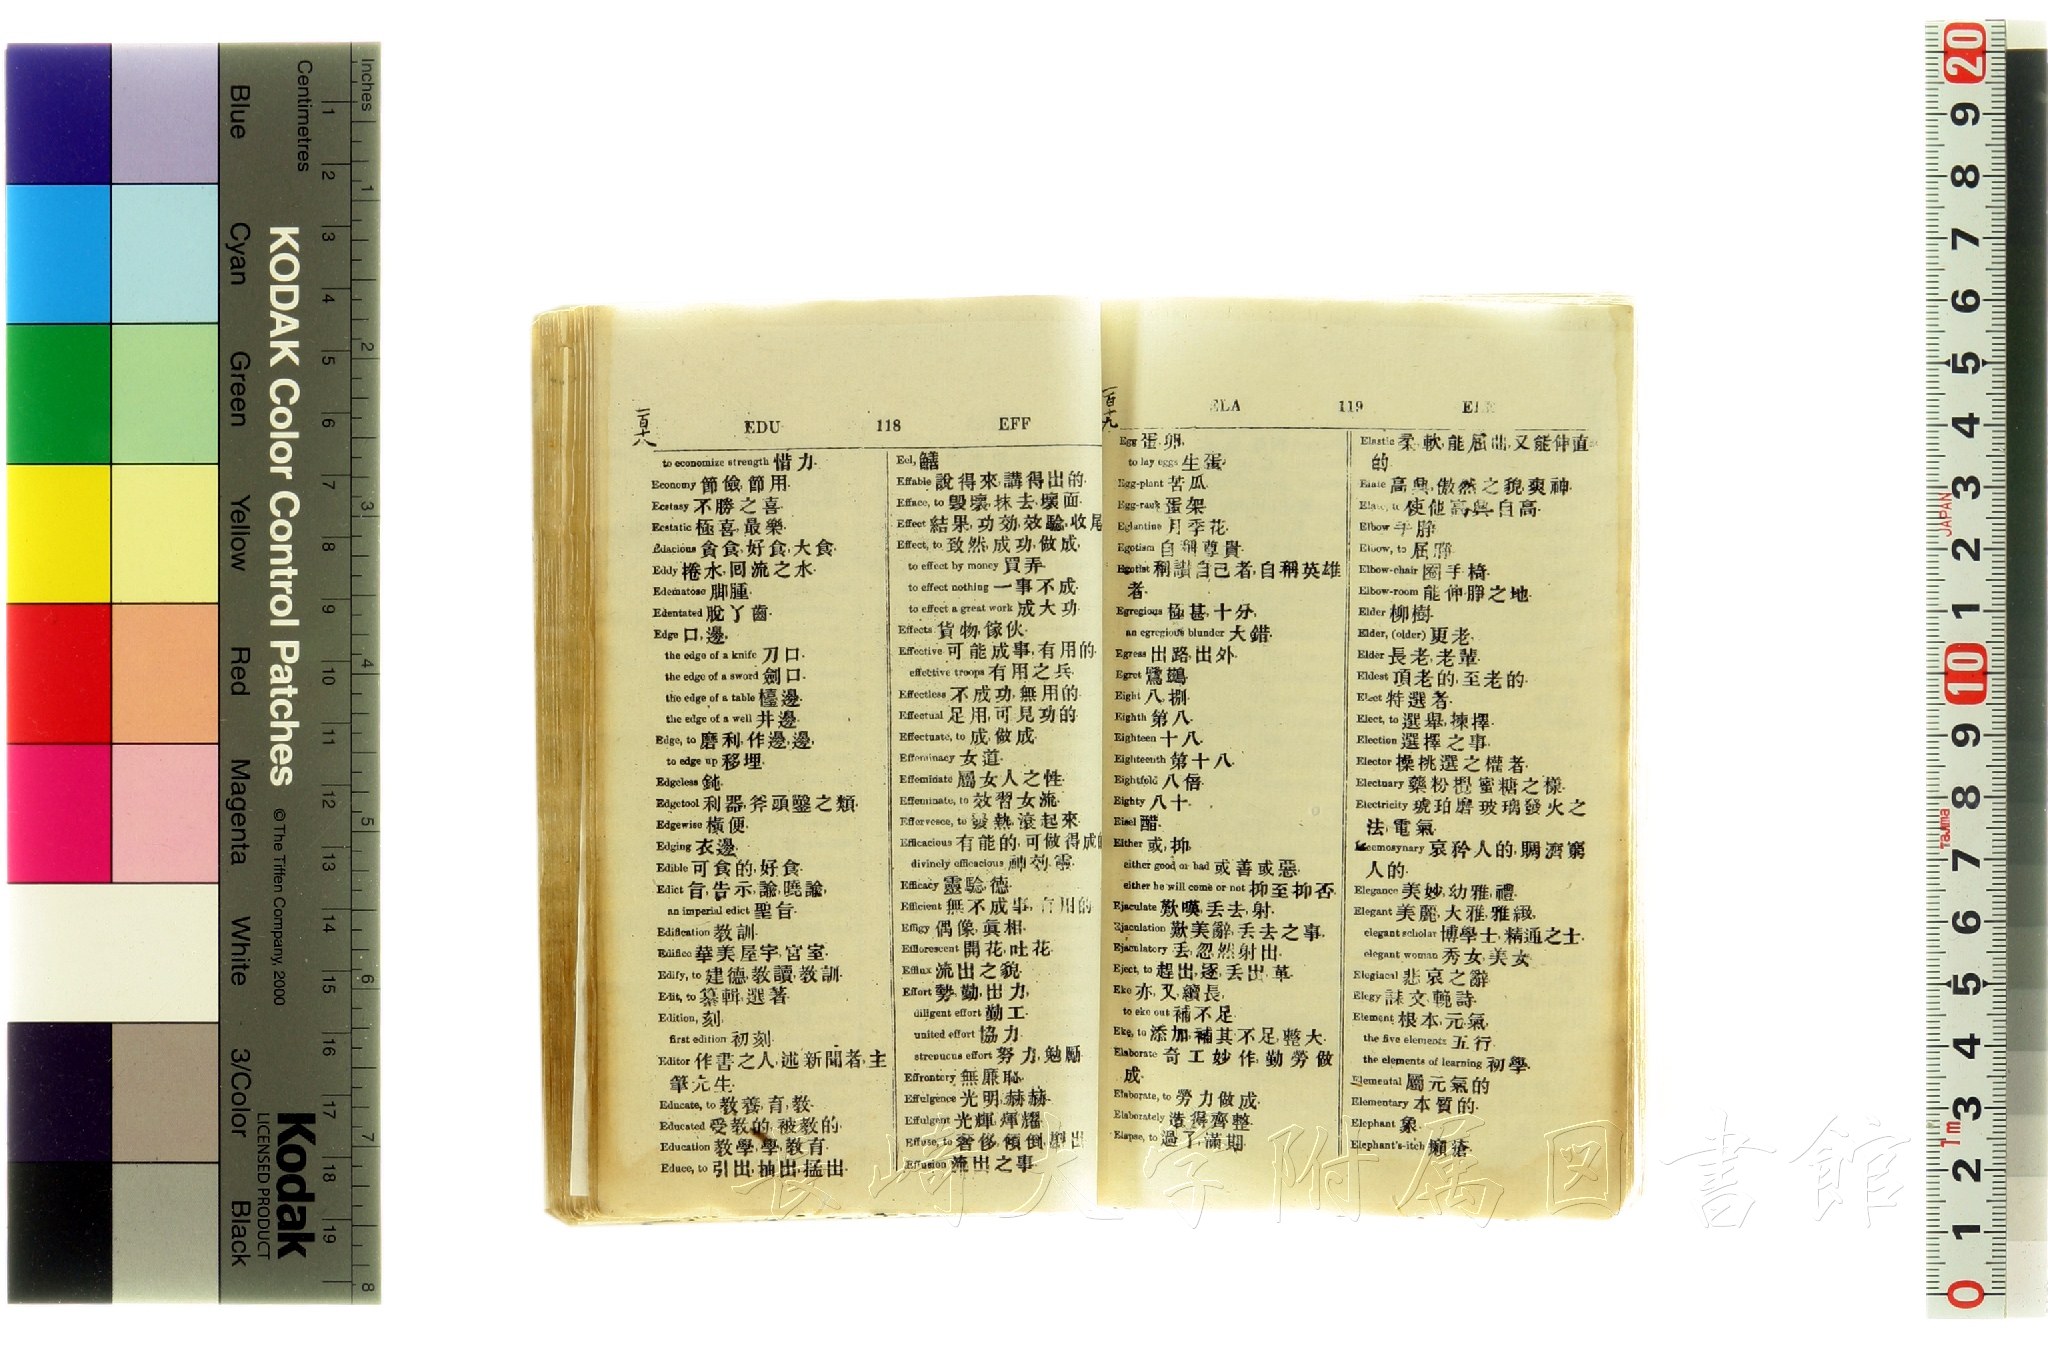 Inches
Centimetres
KODAK Color Control Patches
© The Tiffen Company, 2000
Kodak
LICENSED PRODUCT
Blue
Cyan
Green
Yellow
Red
Magenta
White
3/Color
Black
一百十八
EDU 118 EFF
to economize strength 惜力.
Economy 節儉,節用.
Ecstasy 不勝之喜.
Ecstatic 極喜,最樂.
Edacious 貪食,好食,大食.
Eddy 捲水,回流之水.
Edematose 脚腫.
Edentated 脫了齒.
Edge 口,邊,
the edge of a knife 刀口.
the edge of a sword 劍口.
the edge of a table 檯邊.
the edge of a well 井邊.
Edge, to 磨利,作邊,邊,
to edge up 移埋.
Edgeless 鈍.
Edgetool 利器,斧頭鑿之類.
Edgewise 橫便.
Edging 衣邊.
Edible 可食的,好食.
Edict 旨,告示,諭,曉諭,
an imperial edict 聖旨.
Edification 教訓.
Edifice 華美屋宇,宮室.
Edify, to 建德,教讀,教訓.
Edit, to 纂輯,選著.
Edition, 刻.
first edition 初刻.
Editor 作書之人,述新聞者,主
筆先生.
Educate, to 教養,育,教.
Educated 受教的,被教的.
Education 教學,學,教育.
Educe, to 引出,抽出,猛出.
Eel, 鱔
Effable 說得來,講得出的.
Efface, to 毀壞,抹去,壞面.
Effect 結果,功効,效驗,收尾
Effect, to 致然,成功,做成,
to effect by money 買弄.
to effect nothing 一事不成.
to effect a great work 成大功.
Effects 貨物,傢伙.
Effective 可能成事,有用的.
effective troops 有用之兵.
Effectless 不成功,無用的.
Effectual 足用,可見功的.
Effectuate, to 成,做成.
Effeminacy 女道.
Effeminate 屬女人之性.
Effeminate, to 效習女流.
Effervesce, to 發熱,滾起來.
Efficacious 有能的,可做得成的
divinely efficacious 神効,靈.
Efficacy 靈驗,德.
Efficient 無不成事,有用的.
Effigy 偶像,眞相.
Efflorescent 開花,吐花.
Efflux 流出之貌.
Effort 勢,勤,出力,
diligent effort 勤工.
united effort 協力.
strenuous effort 努力,勉勵.
Effrontery 無廉恥.
Effulgence 光明,赫赫.
Effulgent 光輝,輝耀.
Effuse, to 奢侈,傾倒,瀉出.
Effusion 流出之事.
一百十九
ELA 119
Egg 蛋,卵,
to lay eggs 生蛋.
Egg-plant 苦瓜.
Egg-rack 蛋架.
Eglantine 月季花.
Egotism 自稱尊貴.
Egotist 稱讃自己者,自稱英雄
者.
Egregious 極甚,十分,
an egregious blunder 大錯.
Egress 出路,出外.
Egret 鷺鷀.
Eight 八,捌.
Eighth 第八.
Eighteen 十八.
Eighteenth 第十八.
Eightfold 八倍.
Eighty 八十.
Eisel 醋.
Either 或,抑,
either good or bad 或善或惡.
either he will come or not 抑至抑否.
Ejaculate 歎嘆,丟去,射.
Ejaculation 歎美辭,丟去之事.
Ejaculatory 丟,忽然射出.
Eject, to 趕出,逐,丟出,革.
Eke 亦,又,續長,
to eke out 補不足.
Eke, to 添加,補其不足,整大.
Elaborate 奇工妙作,勤勞做
成.
Elaborate, to 勞力做成.
Elaborately 造得齊整.
Elapse, to 過了,滿期.
Elastic 柔軟,能屈出,又能伸直
的.
Elate 高興,傲然之貌,爽神.
Elate, to 使他高興,自高.
Elbow 手睜.
Elbow, to 屈睜.
Elbow-chair 圈手椅.
Elbow-room 能伸睜之地.
Elder 柳樹.
Elder, (older) 更老.
Elder 長老,老輩.
Eldest 頂老的,至老的.
Elect 特選者.
Elect, to 選舉,揀擇.
Election 選擇之事.
Elector 操挑選之權者.
Electuary 藥粉攪蜜糖之樣.
Electricity 琥珀磨玻璃發火之
法,電氣.
Eleemosynary 哀矜人的,賙濟窮
人的.
Elegance 美妙,幼雅,禮.
Elegant 美麗,大雅,雅緻,
elegant scholar 博學士,精通之士.
elegant woman 秀女,美女.
Elegiacal 悲哀之辭.
Elegy 誄文,輓詩.
Element 根本,元氣,
the five elements 五行.
the elements of learning 初學.
Elemental 屬元氣的
Elementary 本質的.
Elephant 象.
Elephant's-itch 癩瘡.
長崎大学附属図書館
JAPAN
Tajima
1m